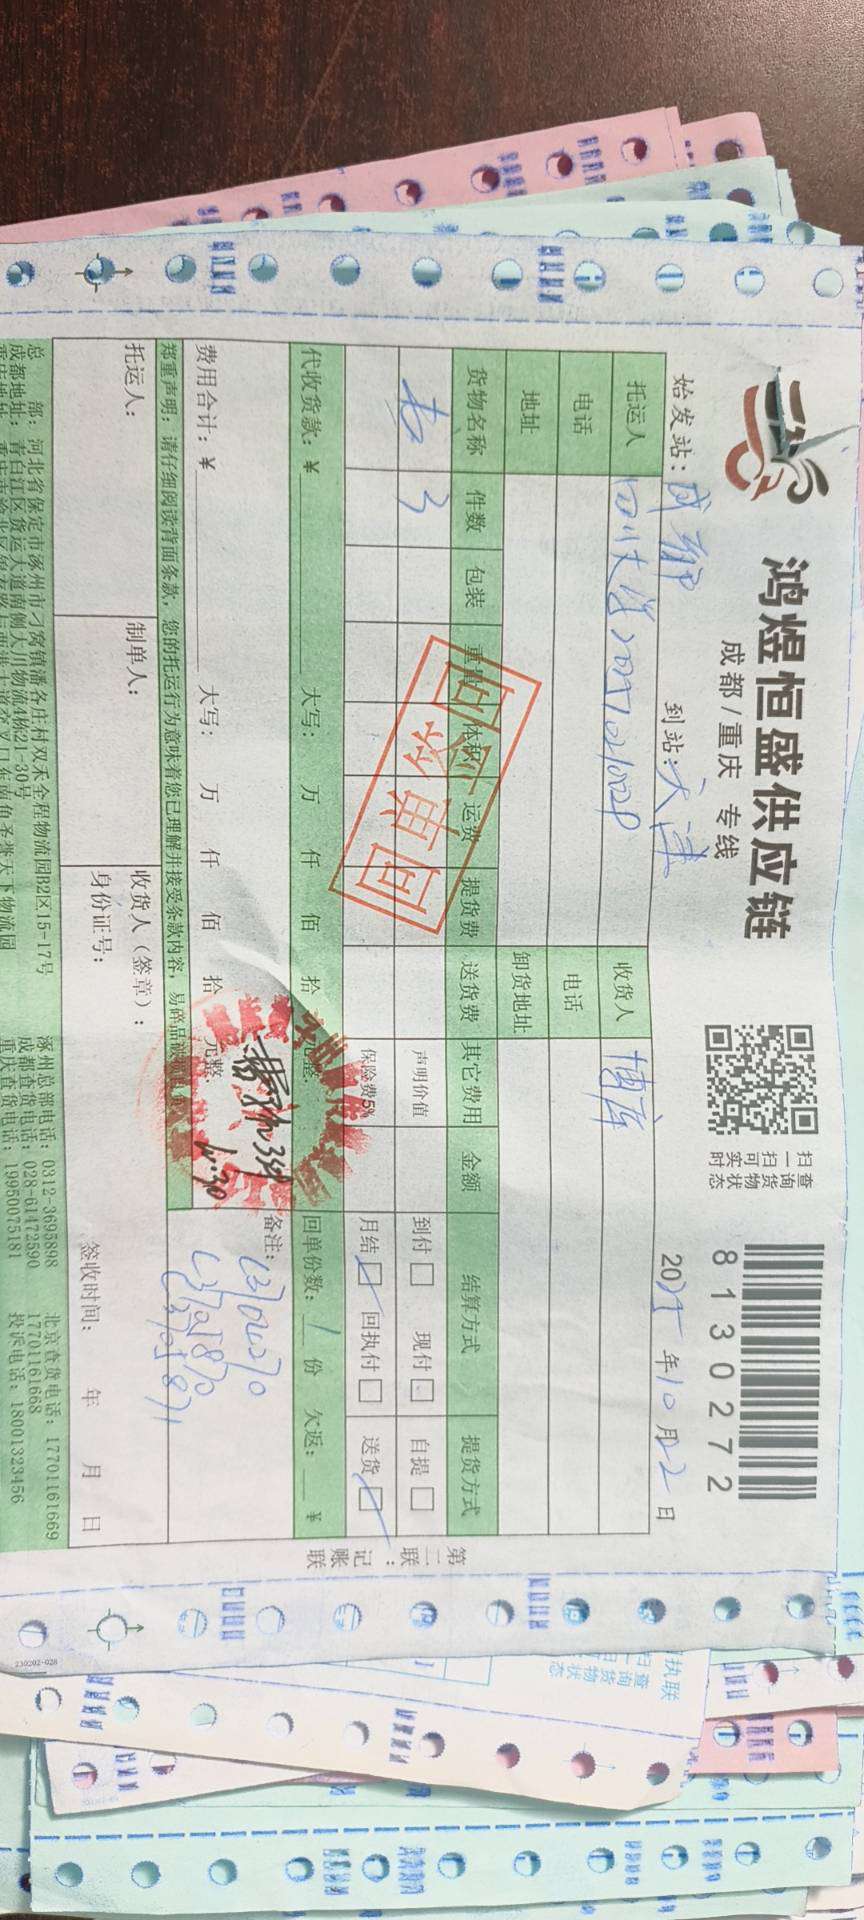 鸿煜恒盛供应链
成都/重庆 专线
扫一扫可实时
查询货物状态
8130272
始发站：成都 到站：天津 2025年10月22日
托运人 四川大学 收货人 博库
电话 电话
地址 卸货地址
货物名称 件数 包装 重量 体积 运费 提货费 送货费 其它费用 金额 结算方式 提货方式
书 3 声明价值 到付 现付 自提
保险费5% 月结 回执付 送货
回单签回
代收货款：¥ 大写： 万 仟 佰 拾 元整 回单份数：1份 欠返： ¥
费用合计：¥ 大写： 万 仟 佰 拾 元整 备注：
郑重声明：请仔细阅读背面条款，您的托运行为意味着您已理解并接受条款内容，易碎品
托运人： 制单人： 收货人（签章）： 签收时间： 年 月 日
身份证号：
总 部：河北省保定市涿州市刁窝镇潘各庄村双禾全程物流园B2区15-17号 涿州总部电话：0312-3695898 北京查货电话：17701161669
17701161668
成都地址：青白江区货运大道南侧大川物流4栋21-30号 成都查货电话：028-61472590
重庆查货电话：19950075181 投诉电话：18001323456
第二联：记账联
230202-028
执联